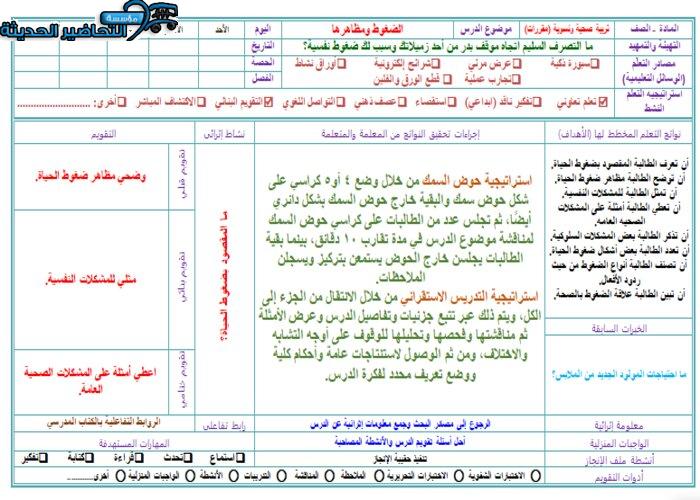 مؤسسة
التحاضير الحديثة
المادة - الصف
تربية صحية ونسوية (مقررات)
موضوع الدرس
الضغوط ومظاهرها
اليوم
الأحد
التهيئة والتمهيد
ما التصرف السليم اتجاه موقف بدر من أحد زميلاتك وسبب لك ضغوط نفسية؟
التاريخ
مصادر التعلم
(الوسائل التعليمية)
سبورة ذكية
عرض مرئي
شرائح إلكترونية
أوراق نشاط
تجارب عملية
قطع الورق والفلين
الحصة
الفصل
استراتيجيه التعلم
النشط
تعلم تعاوني
تفكير ناقد (ابداعي)
استقصاء
عصف ذهني
التواصل اللغوي
التقويم البنائي
الاكتشاف المباشر
أخرى: ........................
نواتج التعلم المخطط لها (الأهداف)
إجراءات تحقيق النواتج من المعلمة والمتعلمة
نشاط إثرائي
التقويم
أن تعرف الطالبة المقصود بضغوط الحياة.
أن توضح الطالبة مظاهر ضغوط الحياة.
أن تمثل الطالبة للمشكلات النفسية.
أن تعطي الطالبة أمثلة على المشكلات
الصحيه العامه.
أن تذكر الطالبة بعض المشكلات السلوكية.
أن تعدد الطالبة بعض أشكال ضغوط الحياة.
أن تصنف الطالبة أنواع الضغوط من حيث
ردود الأفعال.
أن تبين الطالبة علاقة الضغوط بالصحة.
الخبرات السابقة
ما احتياجات المولود الجديد من الملابس؟
استراتيجية حوض السمك من خلال وضع ٤ أو٥ كراسي على
شكل حوض سمك والبقية خارج حوض السمك بشكل دائري
أيضًا، ثم تجلس عدد من الطالبات على كراسي حوض السمك
لمناقشة موضوع الدرس في مدة تقارب ١٠ دقائق، بينما بقية
الطالبات يجلسن خارج الحوض يستمعن بتركيز ويسجلن
الملاحظات.
استراتيجية التدريس الاستقرائي من خلال الانتقال من الجزء إلى
الكل، ويتم ذلك عبر تتبع جزئيات وتفاصيل الدرس وعرض الأمثلة
ثم مناقشتها وفحصها وتحليلها للوقوف على أوجه التشابه
والاختلاف، ومن ثم الوصول لاستنتاجات عامة وأحكام كلية
ووضع تعريف محدد لفكرة الدرس.
ما المقصود بضغوط الحياة؟
تقويم قبلي
وضحي مظاهر ضغوط الحياة.
تقويم بنائي
مثلي للمشكلات النفسية.
تقويم ختامي
اعطي أمثلة على المشكلات الصحية
العامة.
معلومة إثرائية
الرجوع إلى مصادر البحث وجمع معلومات إثرائية عن الدرس
رابط تفاعلي
الروابط التفاعلية بالكتاب المدرسي
الواجبات المنزلية
أحل أسئلة تقويم الدرس والأنشطة المصاحبة
المهارات المستهدفة
أنشطة ملف الإنجاز
تنفيذ حقيبة الإنجاز
استماع
تحدث
قراءة
كتابة
تفكير
أدوات التقويم
الاختبارات الشفوية
الاختبارات التحريرية
الملاحظة
المناقشة
التدريبات
الأنشطة
الواجبات المنزلية
أخرى..........